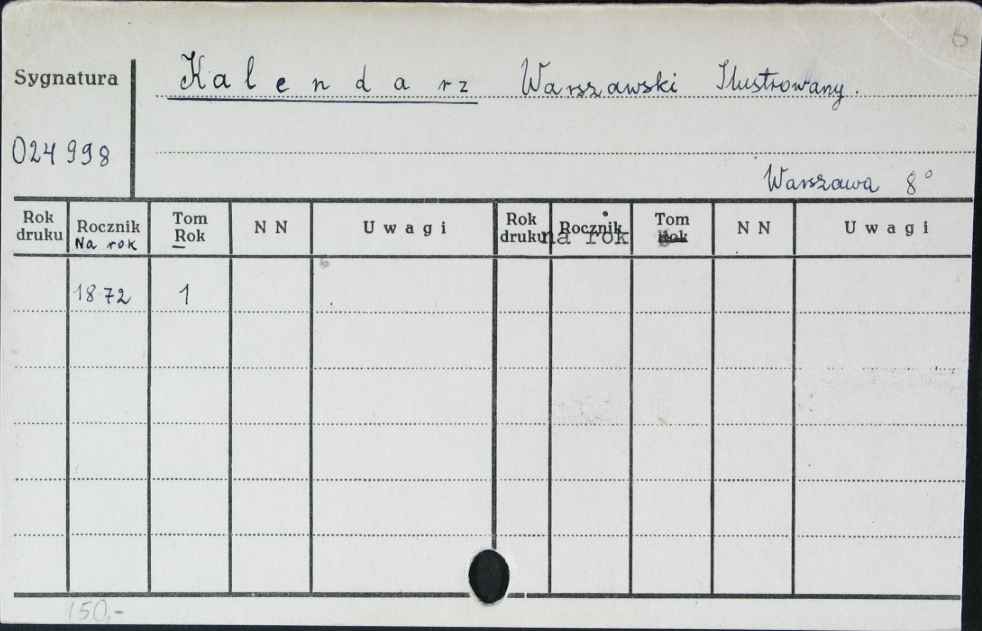 6
Sygnatura Kalendarz Warszawski Ilustrowany.
024998
Warszawa 8°
Rok druku Rocznik Na rok Tom Rok N N Uwagi Rok druku Rocznik na rok Tom Rok N N Uwagi
1872 1
150,-